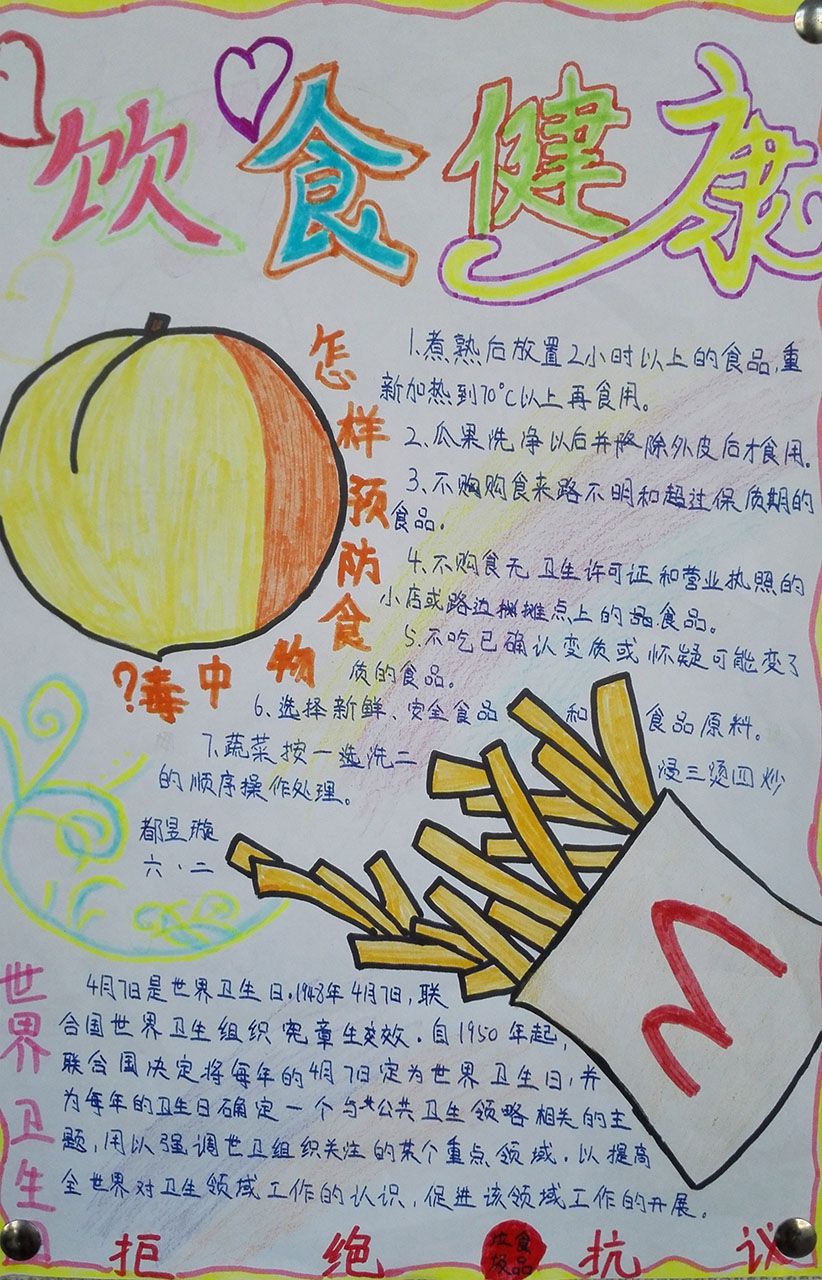 饮食健康
怎样预防食物中毒?
1.煮熟后放置2小时以上的食品,重
新加热到70℃以上再食用。
2、瓜果洗净以后并除外皮后才食用。
3、不购食来路不明和超过保质期的
食品。
4、不购食无卫生许可证和营业执照的
小店或路边摊点上的食品。
5、不吃已确认变质或怀疑可能变了
质的食品。
6、选择新鲜、安全食品和食品原料。
7、蔬菜按一选洗二浸三烫四炒
的顺序操作处理。
都昱璇
六·二
世界卫生日
4月7日是世界卫生日.1948年4月7日,联
合国世界卫生组织宪章生效.自1950年起,
联合国决定将每年的4月7日定为世界卫生日,并
为每年的卫生日确定一个与公共卫生领略相关的主
题,用以强调世卫组织关注的某个重点领域.以提高
全世界对卫生领域工作的认识,促进该领域工作的开展。
拒绝垃圾食品抗议